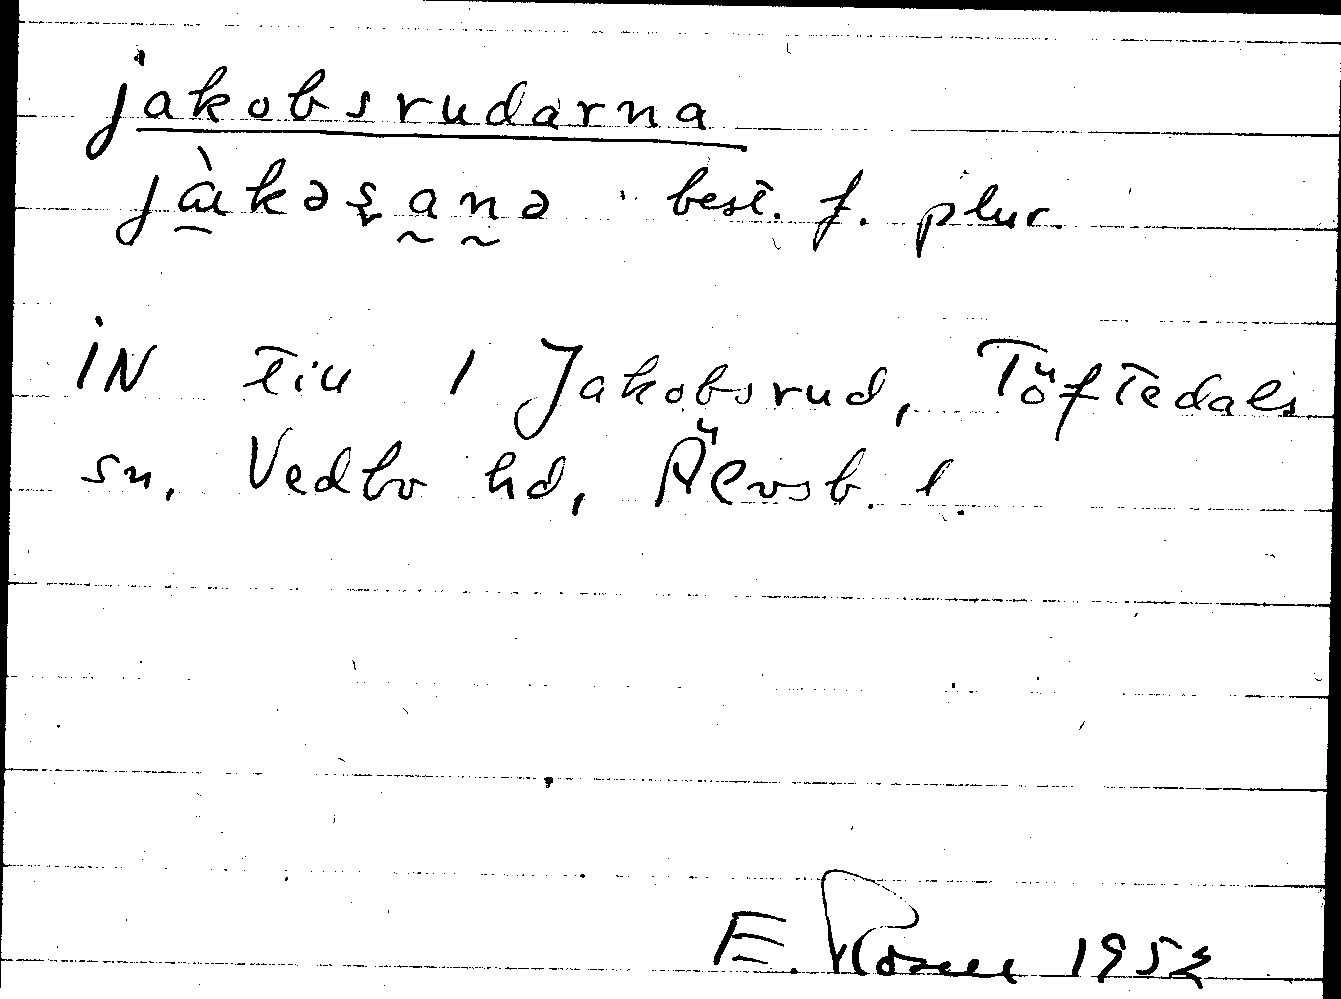 jakobsrudarna
jàkəʂanə best. f. plur.
iN till 1 Jakobsrud, Töftedals
sn, Vedbo hd, Älvsb. l.
E. Rosell 1952